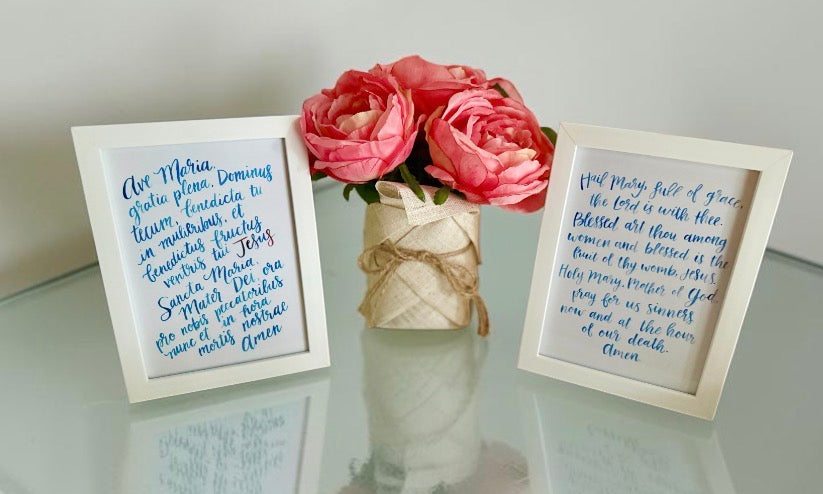 Ave Maria,
gratia plena, Dominus
tecum, benedicta tu
in mulieribus, et
benedictus fructus
ventris tui Jesus
Sancta Maria,
Mater Dei ora
pro nobis peccatoribus
nunc et in hora
mortis nostrae
Amen
Hail Mary, full of grace,
the Lord is with thee.
Blessed art thou among
women and blessed is the
fruit of thy womb, Jesus.
Holy Mary, Mother of God,
pray for us sinners
now and at the hour
of our death.
Amen